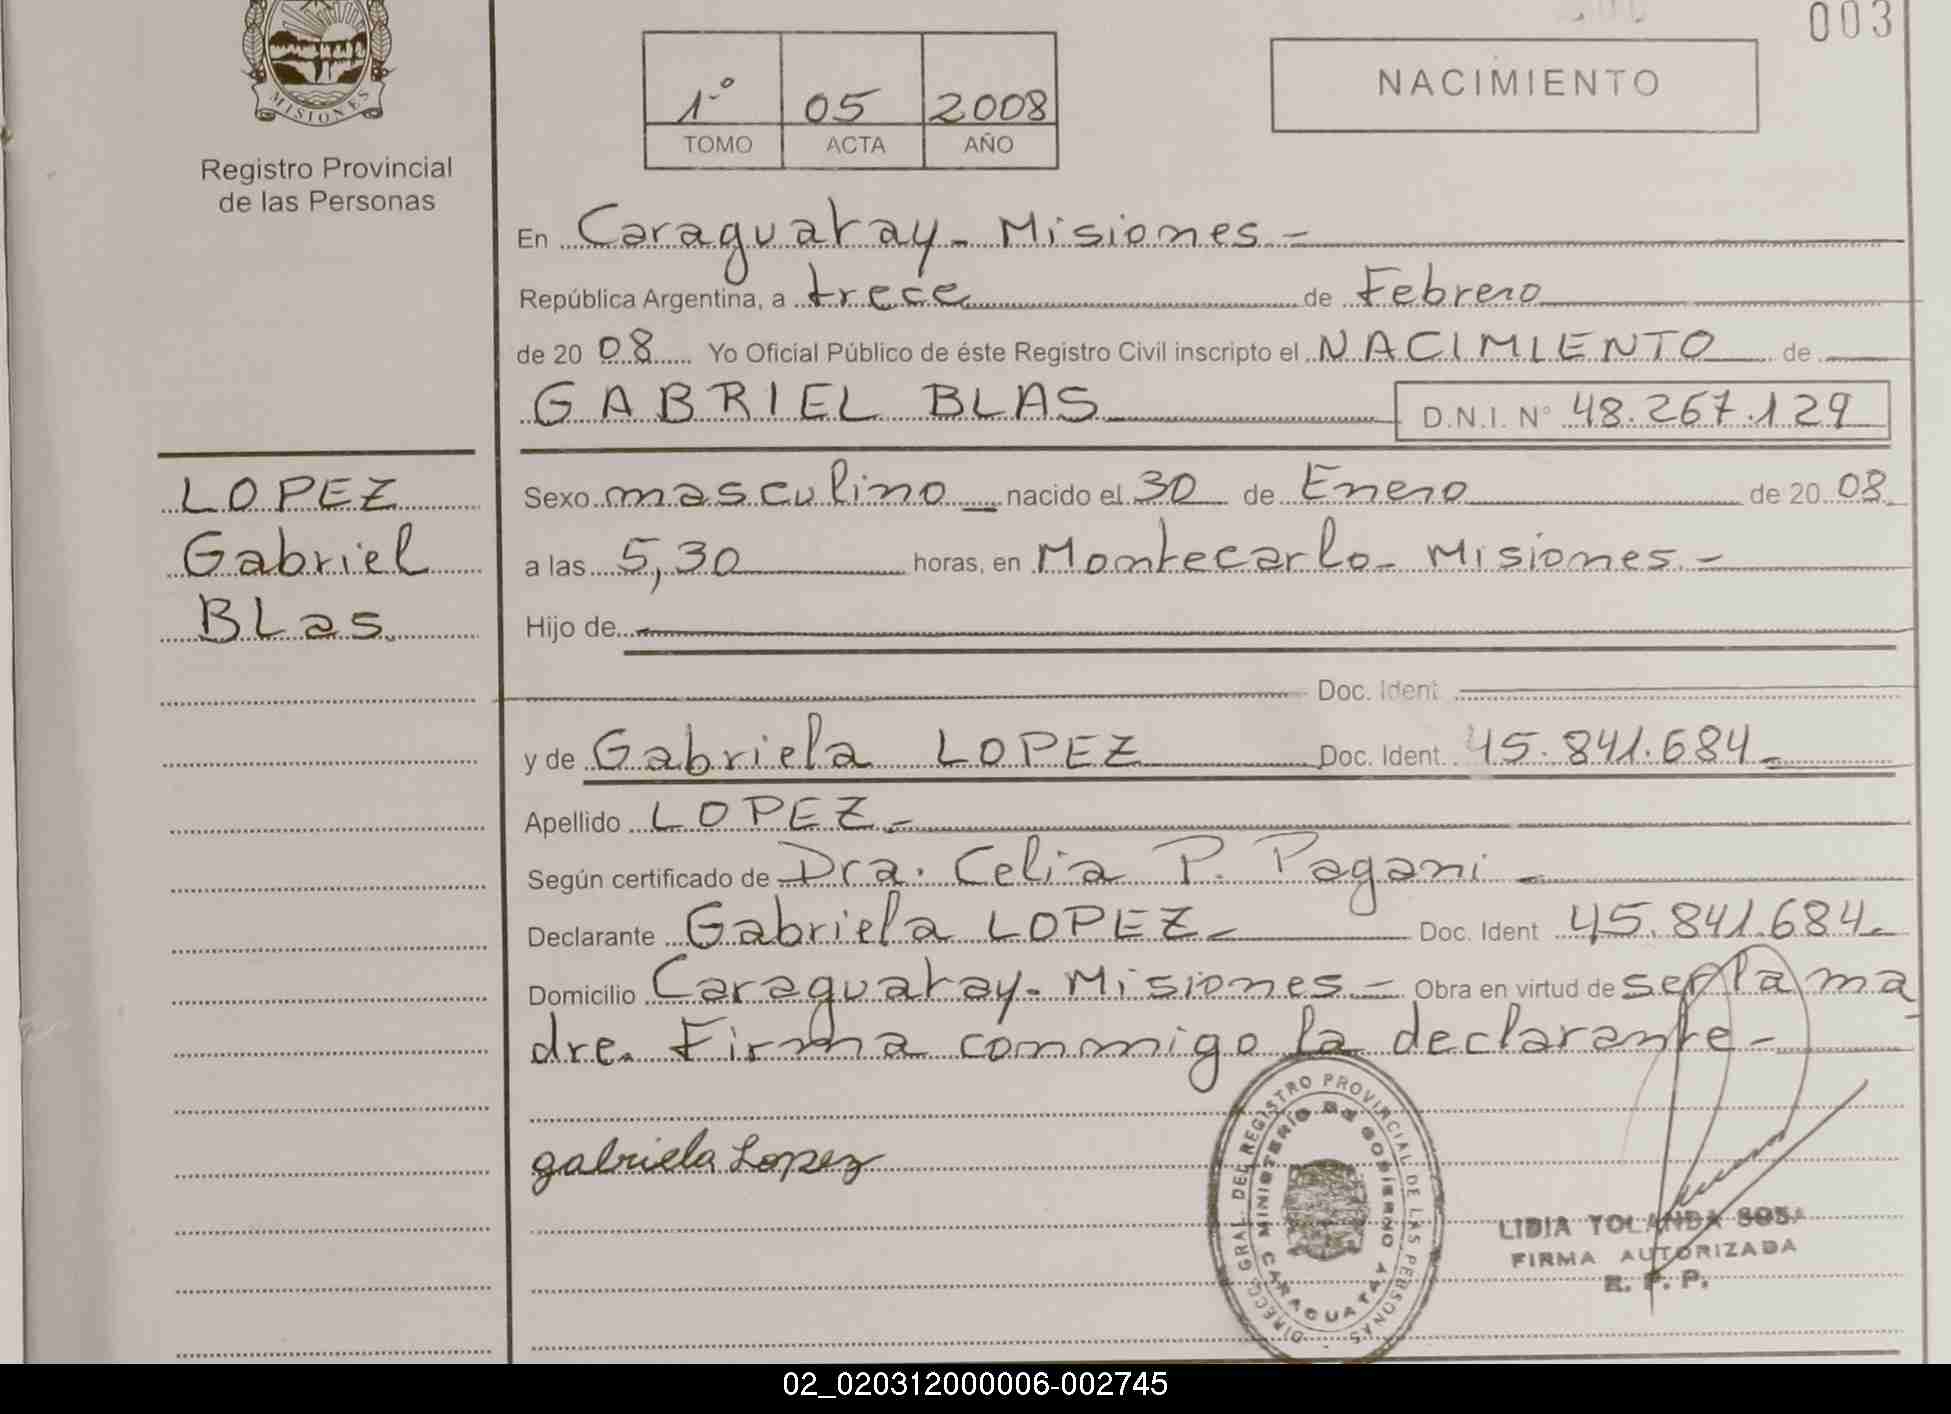 003
MISIONES
Registro Provincial
de las Personas
1º 05 2008
TOMO ACTA AÑO
NACIMIENTO
En Caraguatay - Misiones -
República Argentina, a trece de Febrero
de 20 08 Yo Oficial Público de éste Registro Civil inscripto el NACIMIENTO de
GABRIEL BLAS D.N.I. N° 48.267.129
LOPEZ
Gabriel
BLas
Sexo masculino nacido el 30 de Enero de 20 08
a las 5,30 horas, en Montecarlo - Misiones -
Hijo de
Doc. Ident
y de Gabriela LOPEZ Doc. Ident. 45.841.684
Apellido LOPEZ -
Según certificado de Dra. Celia P. Pagani -
Declarante Gabriela LOPEZ - Doc. Ident 45.841.684
Domicilio Caraguatay - Misiones - Obra en virtud de ser la ma
dre. Firma conmigo la declarante -
gabriela Lopez
DIRECC. GRAL. DEL REGISTRO PROVINCIAL DE LAS PERSONAS
MINISTERIO DE GOBIERNO
CARAGUATAY
LIDIA YOLANDA SOSA
FIRMA AUTORIZADA
R. P. P.
02_020312000006-002745